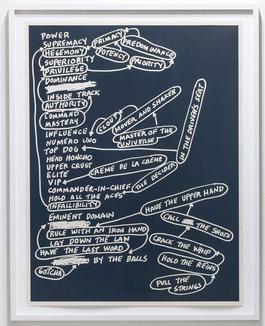 POWER
SUPREMACY
PRIMACY
PREDOMINANCE
HEGEMONY
POTENCY
SUPERIORITY
PRIORITY
PRIVILEGE
DOMINANCE
INSIDE TRACK
AUTHORITY
COMMAND
MASTERY
CLOUT
MOVER AND SHAKER
INFLUENCE
MASTER OF THE
UNIVERSE
NUMERO UNO
TOP DOG
IN THE DRIVER'S SEAT
HEAD HONCHO
UPPER CRUST
CRÈME DE LA CRÈME
ELITE
VIP
THE DECIDER
COMMANDER-IN-CHIEF
HOLD ALL THE ACES
INFALLIBILITY
HAVE THE UPPER HAND
EMINENT DOMAIN
CALL THE SHOTS
RULE WITH AN IRON HAND
LAY DOWN THE LAW
CRACK THE WHIP
HAVE THE LAST WORD
BY THE BALLS
HOLD THE REINS
GOTCHA
PULL THE
STRINGS